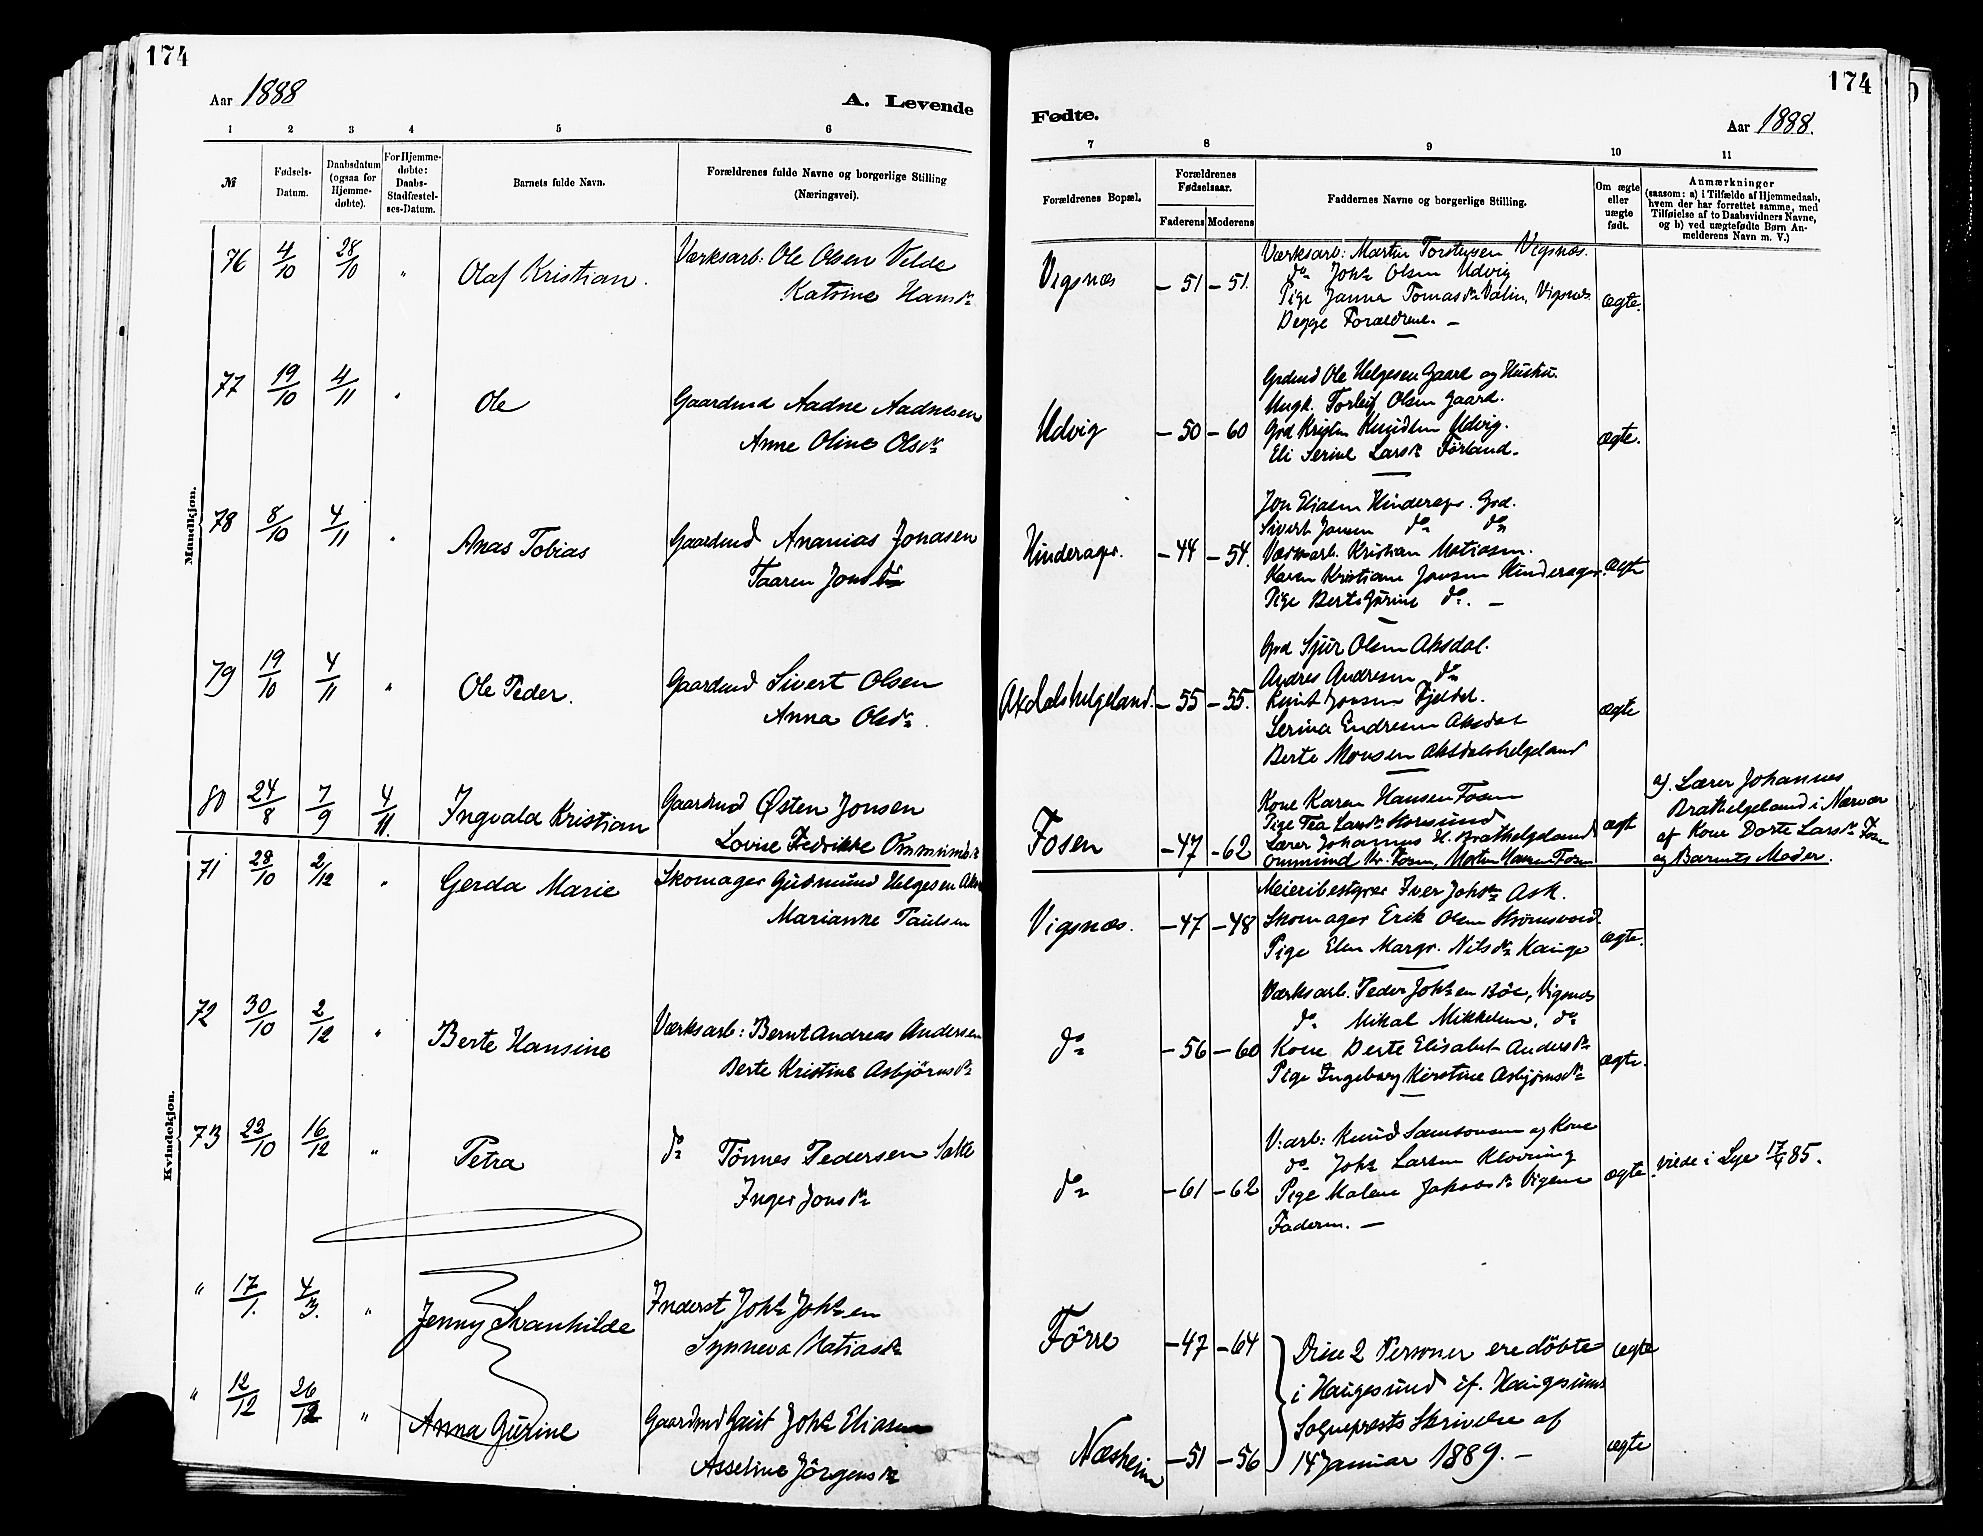 174
Aar 1888
A. Levende
1 2 3 4 5 6
№
Fødsels-Datum.
Daabsdatum (ogsaa for Hjemme-døbte).
For Hjemme-døbte: Daabs-Stadfæstel-ses-Datum.
Barnets fulde Navn.
Forældrenes fulde Navne og borgerlige Stilling (Næringsvei).
Mandkjøn.
76 4/10 28/10 " Olaf Kristian. Værksarb: Ole Olsen Velde
Katrine Hansdr
77 19/10 4/11 " Ole Gaardmd Aadne Aadnesen
Anne Oline Olsdr
78 8/10 4/11 " Anas Tobias Gaardmd Ananias Jonasen
Taaren Jonsdr
79 19/10 4/11 " Ole Peder. Gaardmd Sivert Olsen
Anna Olsdr.
80 24/8 7/9 4/11. Ingvald Kristian Gaardmd Østen Jonsen
Lovise Fedrikke Ommundsdr
Kvindekjøn.
71 28/10 2/12 " Gerda Marie Skomager Gudmund Helgesen
Marianne Paulsen
72 30/10 2/12 " Berte Hansine Værksarb: Bernt Andreas Andersen
Berte Kristine Asbjørnsdr
73 23/10 16/12 " Petra do Tønnes Pedersen
Inger Jonsdr
" 17/1. 4/3. " Jenny Svanhilde Inderst Johs Johsen
Synneva Matiasdr
" 12/12 26/12 " Anna Gurine Gaardmd Gaut Johs Eliasen
Asseline Jørgensdr
174
Fødte.
Aar 1888.
7 8 9 10 11
Forældrenes Bopæl.
Forældrenes Fødselsaar.
Faderens Moderens
Faddernes Navne og borgerlige Stilling.
Om ægte eller uægte født.
Anmærkninger
(saasom: a) i Tilfælde af Hjemmedaab,
hvem der har forrettet samme, med
Tilføielse af to Daabsvidners Navne,
og b) ved uægtefødte Børn An-
melderens Navn m. V.)
Værksarb: Martin Torstensen, Vigsnæs.
Vigsnæs – 51 – 51. do Johs Olsen Udvig
Pige Janna Tomasdr Valin, Vigsnes ægte.
Begge Forældrene. –
Grdmd Ole Helgesen Gaard og Hustru.
Ungk. Torleif Olsen Gaard.
Udvig – 50 – 60 Grd Kristen Knudsen Udvig. ægte.
Eli Serine Larsdr Førland.
Jon Eliasen Hinderager. Grd.
Sivert Jonsen do do
Hinderager. – 44 – 54. Værksarb. Kristian Matiasen.
Karen Kristiane Jonsen Hinderager. ægte
Pige Berte Gurine do. –
Grd Sjur Olsen Aksdal.
Andres Andresen do
Axdalshelgeland. – 55 – 55. Knut Jonsen Fjeldal. ægte
Serina Endresen Aksdal
Berte Monsen Aksdalshelgeland
Kone Karen Hansen Fosen
Pige Tea Larsdr
Fosen – 47 – 62 Lærer Johannes H. Brathelgeland ægte
Ommund Kr. Fosen, Morten Hansen Fosen
a). Lærer Johannes
Brathelgeland i Nærvær
af Kone Dorte Larsdr Fosen
og Barnets Moder.
Meieribestyrer Iver Johsdr Ask.
Vigsnæs. – 47 – 48 Skomager Erik Olsen
Pige Elen Margr. Nilsdr Hauge ægte.
Værksarb. Peder Johsen Bøe, Vigsnes
do Mikal Mikkelsen, do
do – 56 – 60 Kone Berte Elisabet Andersdr ægte.
Pige Ingeborg Kirstine Asbjørnsdr
V:arb: Knud Samsonsen og Kone
do Johs Larsen Kløvning
do – 61 – 62 Pige Malene Jakobsdr Vigsnes ægte
Faderen. –
viede i Lye 17/4 85.
Førre – 47 – 64 Disse 2 Personer ere døbte ægte
i Haugesund if. Haugesunds
Sogneprests Skrivelse af
Næsheim – 51 – 56 14 Januar 1889. – ægte